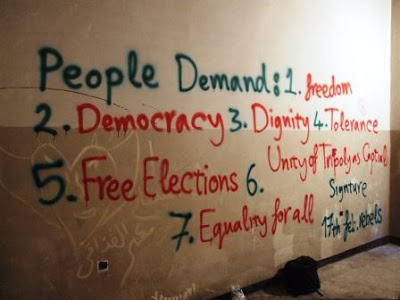 People Demand: 1. freedom
2. Democracy 3. Dignity 4. Tolerance
5. Free Elections 6. Unity of Tripoly as Capital
7. Equality for all
Signture
17th feb. rebels